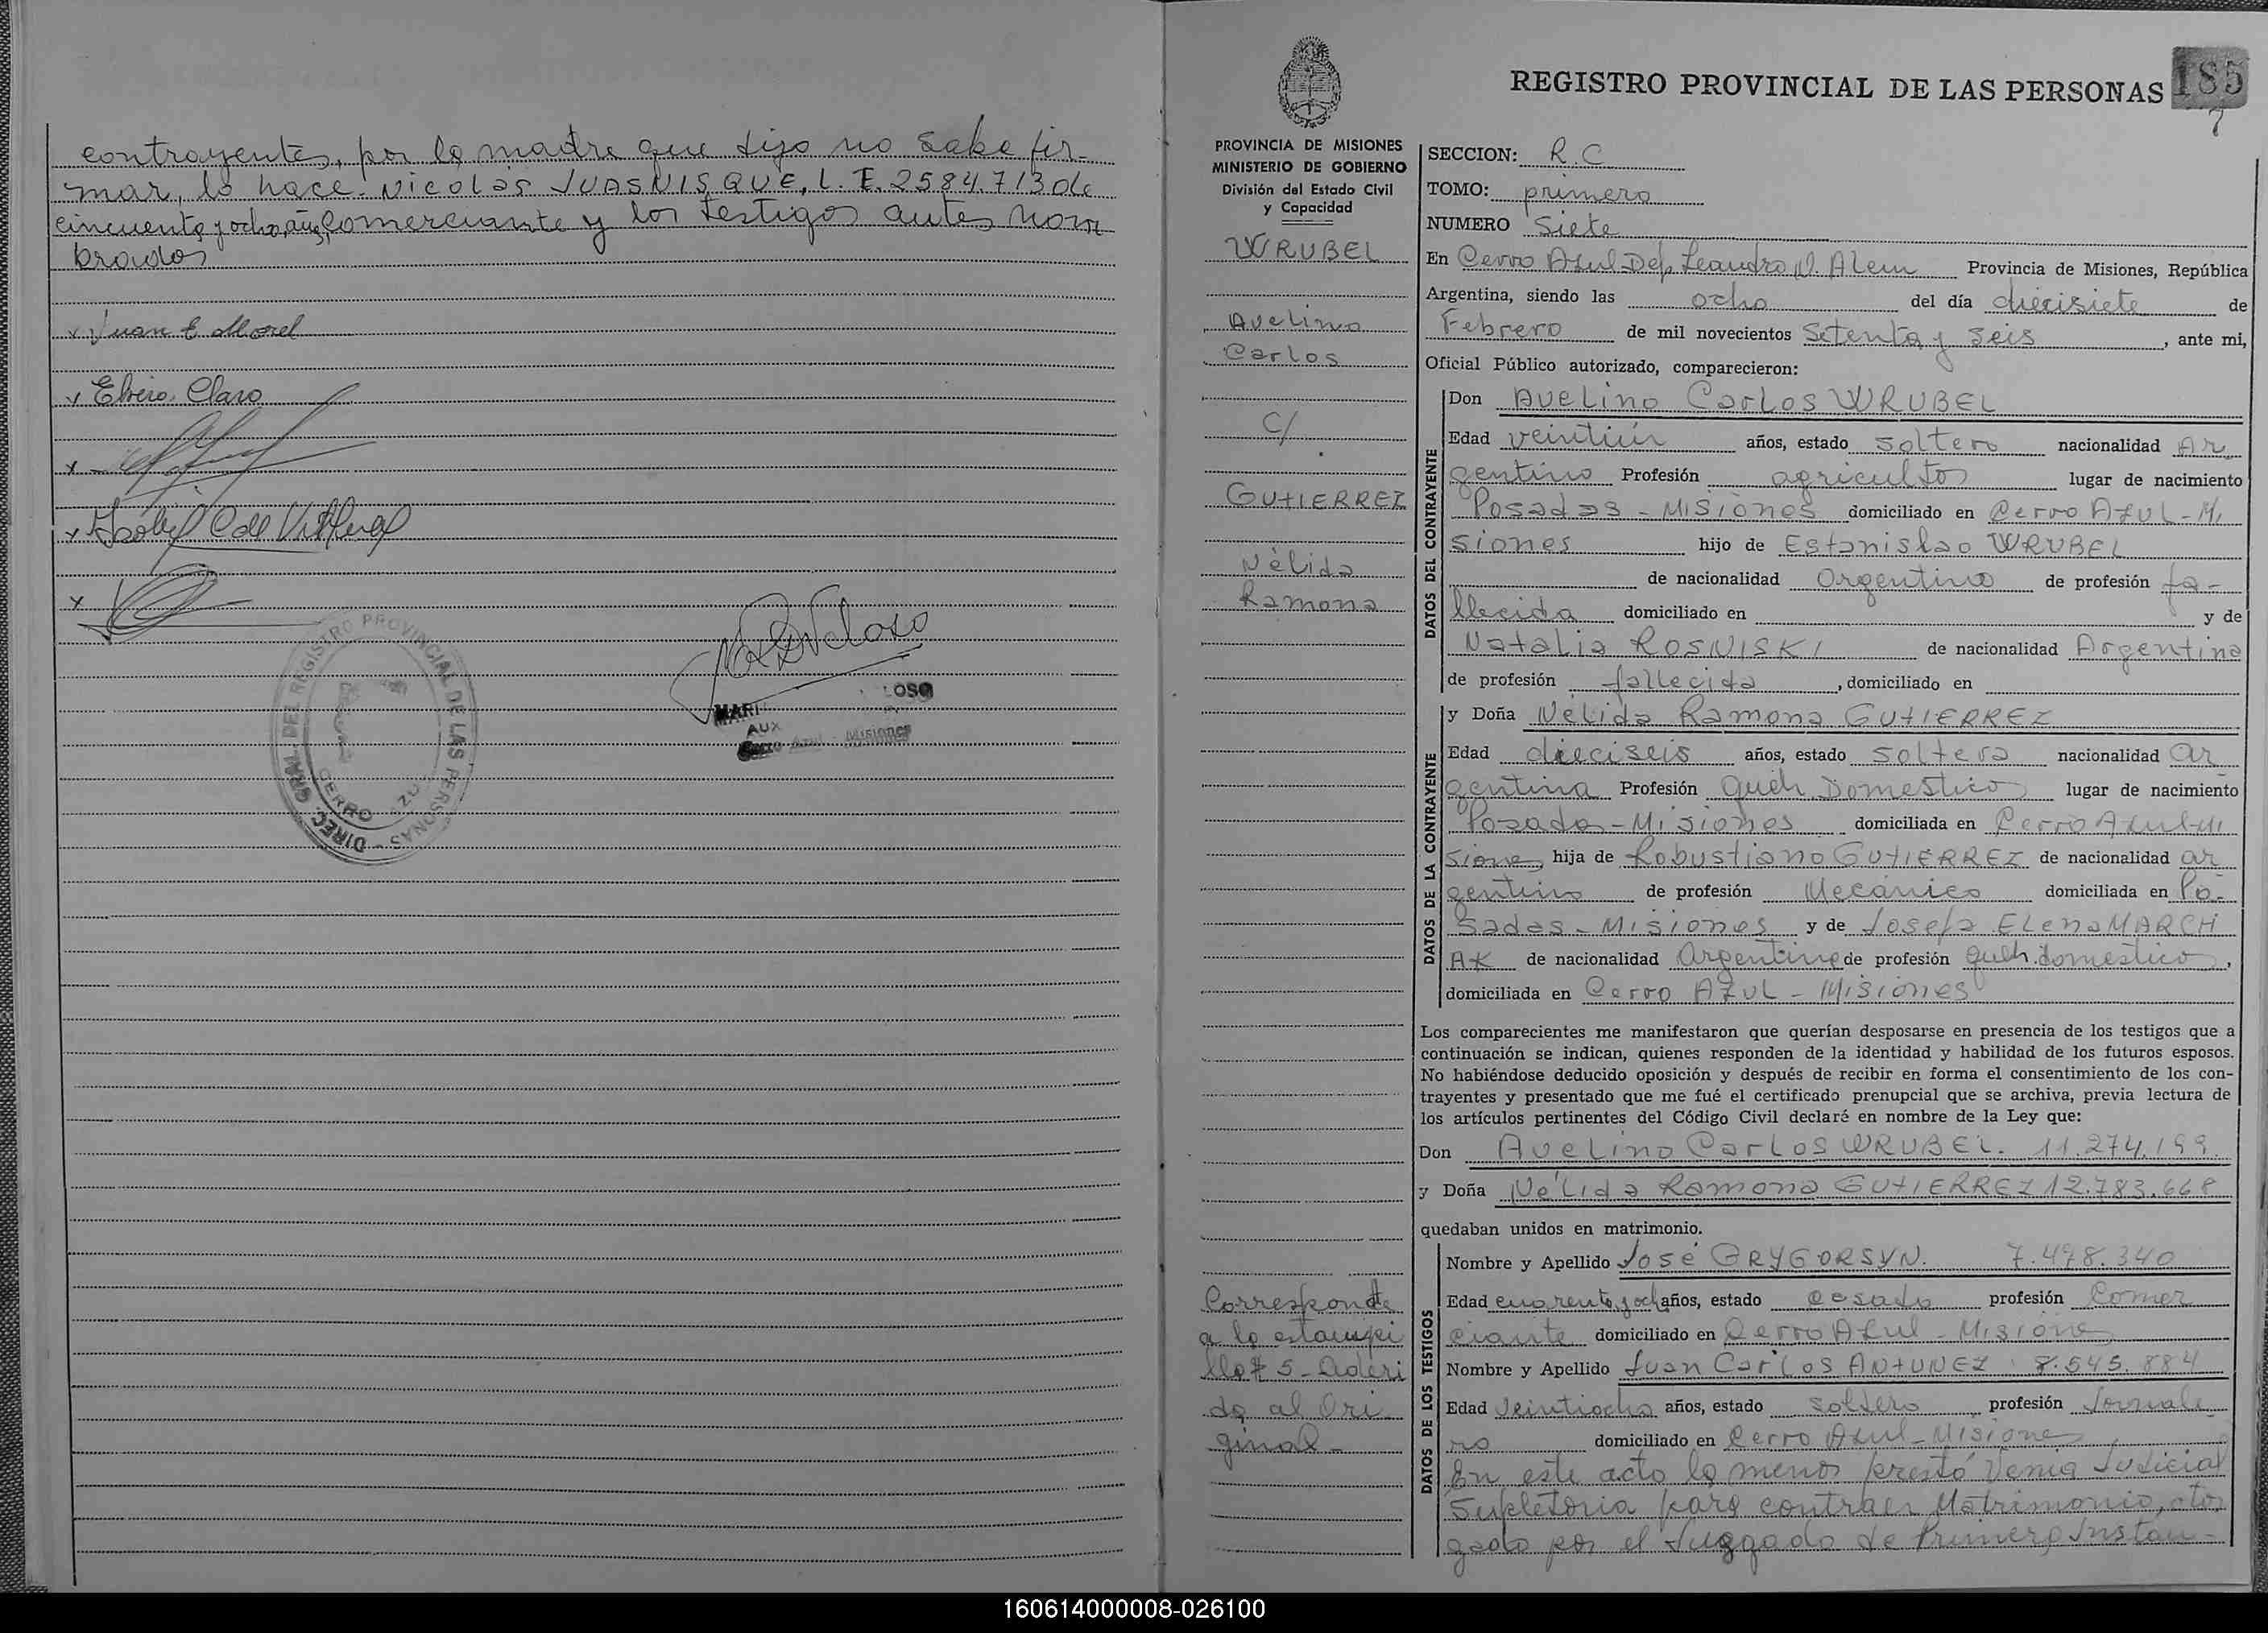 contrayentes, por la madre que dijo no sabe fir-
mar, lo hace. Nicolás JUASNISQUE, L. E. 2584.713 de
cincuenta y ocho años, comerciante y los testigos antes nom
brados
x Juan E Morel
x Elvira Claro
x
x Isabel C de Villeral
x
DIREC. GRAL. DEL REGISTRO PROVINCIAL DE LAS PERSONAS -
CERRO AZUL
MARI LOSO
AUX
Cerro Azul - Misiones
REGISTRO PROVINCIAL DE LAS PERSONAS 185
7
PROVINCIA DE MISIONES
MINISTERIO DE GOBIERNO
División del Estado Civil
y Capacidad
WRUBEL
Avelino
Carlos
C/
GUTIERREZ
Nélida
Ramona
Corresponde
a la estampi
lla $ 5 - Aderi
da al Ori
ginal -
SECCION: R.C
TOMO: primero
NUMERO Siete
En Cerro Azul Dep. Leandro N. Alem Provincia de Misiones, República
Argentina, siendo las ocho del día diecisiete de
Febrero de mil novecientos Setenta y Seis, ante mi,
Oficial Público autorizado, comparecieron:
DATOS DEL CONTRAYENTE
Don Avelino Carlos WRUBEL
Edad veintiún años, estado soltero nacionalidad Ar
gentino Profesión agricultor lugar de nacimiento
Posadas - Misiones domiciliado en Cerro Azul - Mi
siones hijo de Estanislao WRUBEL
de nacionalidad Argentino de profesión fa-
llecido domiciliado en y de
Natalia ROSNISKI de nacionalidad Argentina
de profesión fallecida, domiciliado en
DATOS DE LA CONTRAYENTE
y Doña Nelida Ramona GUTIERREZ
Edad dieciseis años, estado soltera nacionalidad ar
gentina Profesión Queh. Domestico lugar de nacimiento
Posadas - Misiones domiciliada en Cerro Azul - Mi
siones hija de Robustiano GUTIERREZ de nacionalidad ar
gentino de profesión Mecánico domiciliada en Po-
sadas - Misiones y de Josefa Elena MARCH
AK de nacionalidad Argentina de profesión queh. domestico,
domiciliada en Cerro Azul - Misiones
Los comparecientes me manifestaron que querían desposarse en presencia de los testigos que a
continuación se indican, quienes responden de la identidad y habilidad de los futuros esposos.
No habiéndose deducido oposición y después de recibir en forma el consentimiento de los con-
trayentes y presentado que me fué el certificado prenupcial que se archiva, previa lectura de
los artículos pertinentes del Código Civil declaré en nombre de la Ley que:
Don Avelino Carlos WRUBEL. 11.274.199.
y Doña Nélida Ramona GUTIERREZ 12.783.668
quedaban unidos en matrimonio.
DATOS DE LOS TESTIGOS
Nombre y Apellido José GRYGORSYN. 7.478.340
Edad cuarenta y ocho años, estado casado profesión Comer
ciante domiciliado en Cerro Azul - Misiones
Nombre y Apellido Juan Carlos ANTUNEZ 8.545.884
Edad veintiocho años, estado soltero profesión Jornale
ro domiciliado en Cerro Azul - Misiones
En este acto la menor prestó Venia Judicial
Supletoria para contraer Matrimonio, otor
gado por el Juzgado de Primera Instan-
160614000008-026100